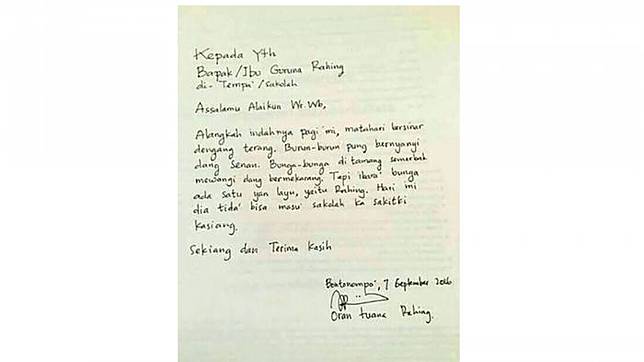 Kepada Yth
Bapak/Ibu Guruna Rahing
di- Tempa'/sakolah
Assalamu Alaikun Wr.Wb,
Alangkah indahnya pagi mi, matahari bersinar
dengang terang. Burun-burun pung bernyanyi
dang Senan. Bunga-bunga di tamang semerbak
mewangi dang bermekarang. Tapi ibara' bunga
ada satu yan layu, yaitu Rahing. Hari mi
dia tida' bisa masu' sakolah ka sakitki
kasiang.
Sekiang dan Terima Kasih
Bontonompo', 7 September 2016
Oran tuana Rahing.